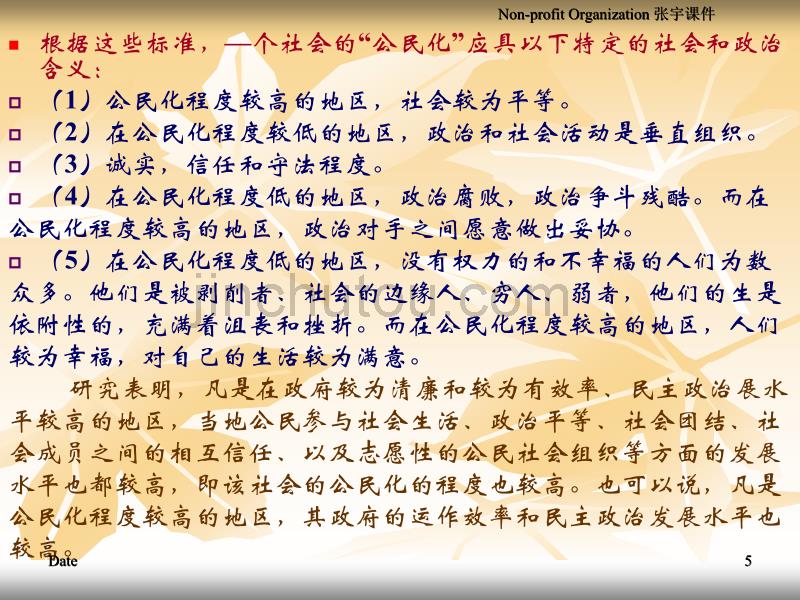 Non-profit Organization 张宇课件
根据这些标准，一个社会的“公民化”应具以下特定的社会和政治
含义：
（1）公民化程度较高的地区，社会较为平等。
（2）在公民化程度较低的地区，政治和社会活动是垂直组织。
（3）诚实，信任和守法程度。
（4）在公民化程度低的地区，政治腐败，政治争斗残酷。而在
公民化程度较高的地区，政治对手之间愿意做出妥协。
（5）在公民化程度低的地区，没有权力的和不幸福的人们为数
众多。他们是被剥削者、社会的边缘人、穷人、弱者，他们的生是
依附性的，充满着沮丧和挫折。而在公民化程度较高的地区，人们
较为幸福，对自己的生活较为满意。
jinchutou.com
研究表明，凡是在政府较为清廉和较为有效率、民主政治展水
平较高的地区，当地公民参与社会生活、政治平等、社会团结、社
会成员之间的相互信任、以及志愿性的公民社会组织等方面的发展
水平也都较高，即该社会的公民化的程度也较高。也可以说，凡是
公民化程度较高的地区，其政府的运作效率和民主政治发展水平也
较高。
Date
5